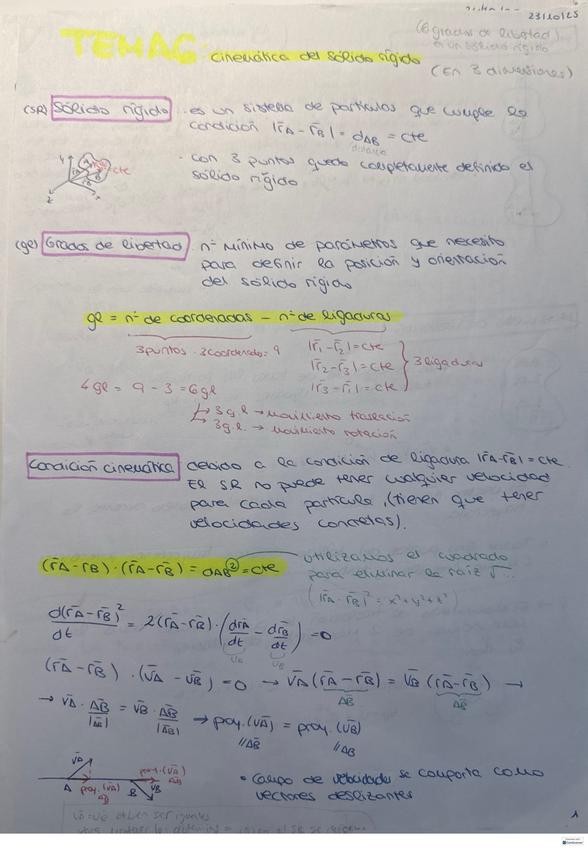 23/10/25
TEMA 6 cinemática del sólido rígido
(6 grados de libertad)
en un sólido rígido
(En 3 dimensiones)
(SR) Sólido rígido · es un sistema de partículas que cumple la
condición |r̄A - r̄B| = dAB = cte
distancia
· con 3 puntos queda completamente definido el
sólido rígido
cte
(gl) Grados de libertad nº mínimo de parámetros que necesito
para definir la posición y orientación
del sólido rígido
gl = nº de coordenadas - nº de ligaduras
3 puntos · 3 coordenad = 9
|r̄1 - r̄2| = cte
|r̄2 - r̄3| = cte
|r̄3 - r̄1| = cte
3 ligaduras
gl = 9 - 3 = 6 gl
↳ 3 gl → movimiento traslación
↳ 3 g.l. → movimiento rotación
Condición cinemática debido a la condición de ligadura |r̄A - r̄B| = cte
El SR no puede tener cualquier velocidad
para cada partícula, (tienen que tener
velocidades concretas).
(r̄A - r̄B) · (r̄A - r̄B) = dAB² = cte
utilizamos el cuadrado
para eliminar la raíz √...
d(r̄A - r̄B)²/dt = 2(r̄A - r̄B) · (dr̄A/dt - dr̄B/dt) = 0
v̄A v̄B
(r̄A - r̄B) · (v̄A - v̄B) = 0 → v̄A (r̄A - r̄B) = v̄B (r̄A - r̄B) →
AB̄ AB̄
→ v̄A · AB̄/|AB̄| = v̄B · AB̄/|AB̄| → proy.(v̄A) = proy.(v̄B)
//AB̄ //AB̄
v̄A proy.(v̄A)
A proy.(v̄A) B v̄B
· Campo de velocidades se comporta como
vectores deslizantes
1